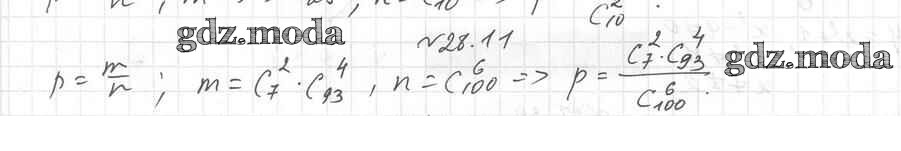 C₁₀²
gdz.moda
№28.11
p = m/n ; m = C₇² · C₉₃⁴ , n = C₁₀₀⁶ => p = C₇² · C₉₃⁴ / C₁₀₀⁶ .
gdz.moda